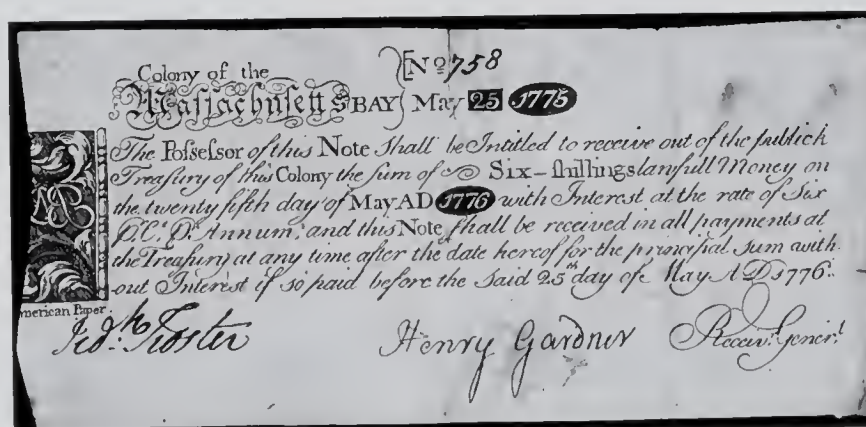 Colony of the
[No 758
Massachusetts BAY May 25 1775
The Possessor of this Note Shall be Intitled to receive out of the publick
Treasury of this Colony the sum of Six-shillings lawfull Money on
the twenty fifth day of May AD 1776 with Interest at the rate of Six
P.Ct. Pr. Annum, and this Note shall be received in all payments at
the Treasury at any time after the date hereof for the principal sum with
out Interest if so paid before the Said 25th day of May A D 1776.
merican Paper.
Jedh. Foster
Henry Gardner
Receivr. Generl.